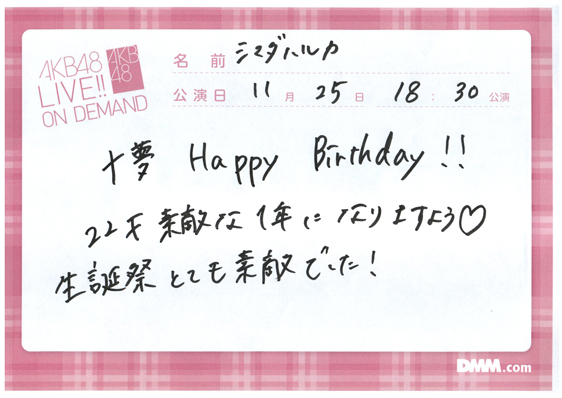 AKB48
LIVE!!
ON DEMAND
AKB
48
名前 シマダハルカ
公演日 11月25日 18:30公演
十夢 Happy Birthday!!
22才 素敵な1年になりますよう♡
生誕祭とても素敵でした!
DMM.com